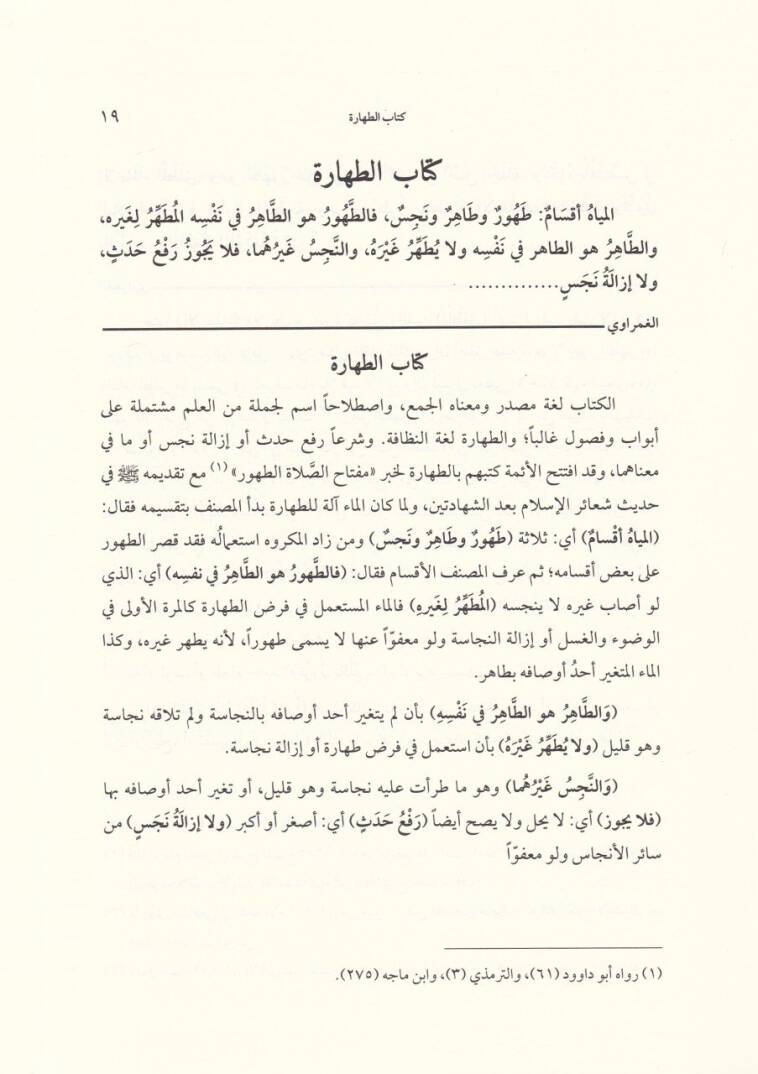 كتاب الطهارة
١٩
كتاب الطهارة
المياهُ أقسَامٌ: طَهُورٌ وطَاهِرٌ ونَجِسٌ، فالطَّهُورُ هو الطَّاهِرُ في نَفْسِه المُطَهِّرُ لِغَيره،
والطَّاهِرُ هو الطاهر في نَفْسِه ولا يُطَهِّرُ غَيْرَهُ، والنَّجِسُ غَيرُهُما، فلا يَجُوزُ رَفْعُ حَدَثٍ،
ولا إزالَةُ نَجَسٍ..............
الغمراوي
كتاب الطهارة
الكتاب لغة مصدر ومعناه الجمع، واصطلاحاً اسم لجملة من العلم مشتملة على
أبواب وفصول غالباً؛ والطهارة لغة النظافة. وشرعاً رفع حدث أو إزالة نجس أو ما في
معناهما، وقد افتتح الأئمة كتبهم بالطهارة لخبر «مفتاح الصَّلاة الطهور» (١) مع تقديمه ﷺ في
حديث شعائر الإسلام بعد الشهادتين، ولما كان الماء آلة للطهارة بدأ المصنف بتقسيمه فقال:
(المياهُ أقْسامٌ) أي: ثلاثة (طَهُورٌ وطَاهِرٌ ونَجسٌ) ومن زاد المكروه استعمالُه فقد قصر الطهور
على بعض أقسامه؛ ثم عرف المصنف الأقسام فقال: (فالطَّهورُ هو الطَّاهِرُ في نفسِه) أي: الذي
لو أصاب غيره لا ينجسه (المُطَهِّرُ لِغَيرِهِ) فالماء المستعمل في فرض الطهارة كالمرة الأولى في
الوضوء والغسل أو إزالة النجاسة ولو معفوّاً عنها لا يسمى طهوراً، لأنه يطهر غيره، وكذا
الماء المتغير أحدُ أوصافه بطاهر.
(وَالطَّاهِرُ هو الطَّاهِرُ في نَفْسِهِ) بأن لم يتغير أحد أوصافه بالنجاسة ولم تلاقه نجاسة
وهو قليل (ولا يُطَهِّرُ غَيْرَهُ) بأن استعمل في فرض طهارة أو إزالة نجاسة.
(وَالنَّجِسُ غَيْرُهُما) وهو ما طرأت عليه نجاسة وهو قليل، أو تغير أحد أوصافه بها
(فلا يجوز) أي: لا يحل ولا يصح أيضاً (رَفْعُ حَدَثٍ) أي: أصغر أو أكبر (ولا إزالَةُ نَجَسٍ) من
سائر الأنجاس ولو معفوّاً
(١) رواه أبو داوود (٦١)، والترمذي (٣)، وابن ماجه (٢٧٥).